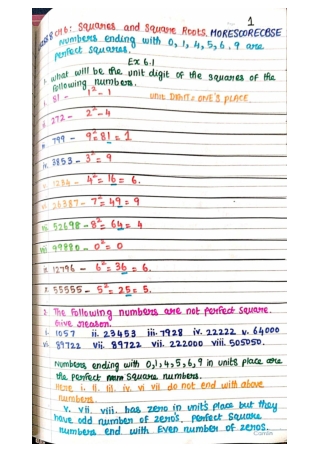 1
CH 6: Squares and Square Roots. MORESCORECBSE
Numbers ending with 0, 1, 4, 5, 6, 9 are
perfect squares.
Ex 6.1
1. What will be the unit digit of the squares of the
following numbers.
i. 81 - 1² - 1 UNIT DIGIT = ONE'S PLACE
ii. 272 - 2² - 4
iii. 799 - 9² = 81 = 1
iv. 3853 - 3² = 9
v. 1234 - 4² = 16 = 6.
vi. 26387 - 7² = 49 = 9
vii. 52698 - 8² = 64 = 4
viii. 99880 - 0² = 0
ix. 12796 - 6² = 36 = 6.
x. 55555 - 5² = 25 = 5.
2. The following numbers are not perfect square.
Give reason.
i. 1057 ii. 23453 iii. 7928 iv. 22222 v. 64000
vi. 89722 vii. 222000 viii. 505050.
Numbers ending with 0,1,4,5,6,9 in units place are
the perfect square numbers.
Here i. ii. iii. iv. vi vii do not end with above
numbers.
v. vii. viii. has zero in unit's place but they
have odd number of zeros. Perfect square
numbers end with Even number of zeros.